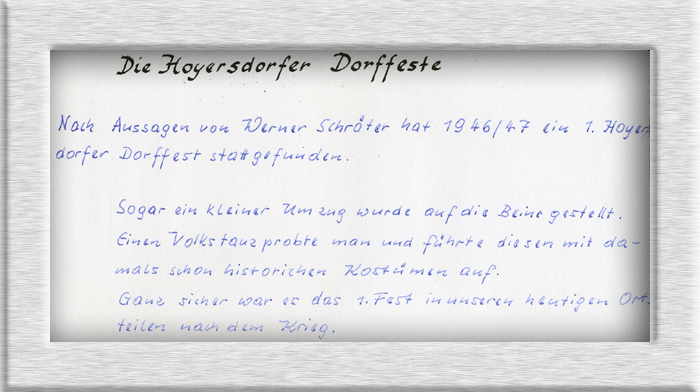 Die Hoyersdorfer Dorffeste
Nach Aussagen von Werner Schröter hat 1946/47 ein 1. Hoyers
dorfer Dorffest stattgefunden.
Sogar ein kleiner Umzug wurde auf die Beine gestellt.
Einen Volkstanz probte man und führte diesen mit da-
mals schon historichen Kostümen auf.
Ganz sicher war es das 1. Fest in unseren heutigen Orts
teilen nach dem Krieg.